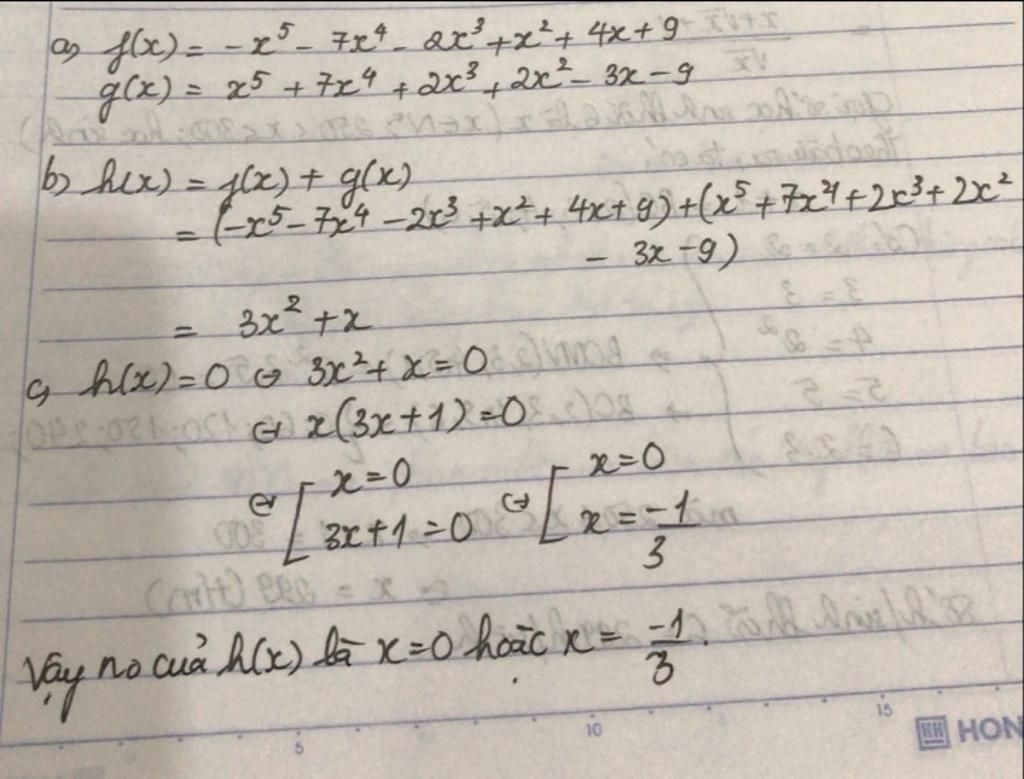 a) f(x) = -x⁵ - 7x⁴ - 2x³ + x² + 4x + 9
g(x) = x⁵ + 7x⁴ + 2x³ + 2x² - 3x - 9
b) h(x) = f(x) + g(x)
= (-x⁵ - 7x⁴ - 2x³ + x² + 4x + 9) + (x⁵ + 7x⁴ + 2x³ + 2x²
- 3x - 9)
= 3x² + x
c) h(x) = 0 ⇔ 3x² + x = 0
⇔ x(3x + 1) = 0
⇔ [ x = 0 ⇔ [ x = 0
3x + 1 = 0 x = -1/3
Vậy no của h(x) là x = 0 hoặc x = -1/3.
5 10 15
HON